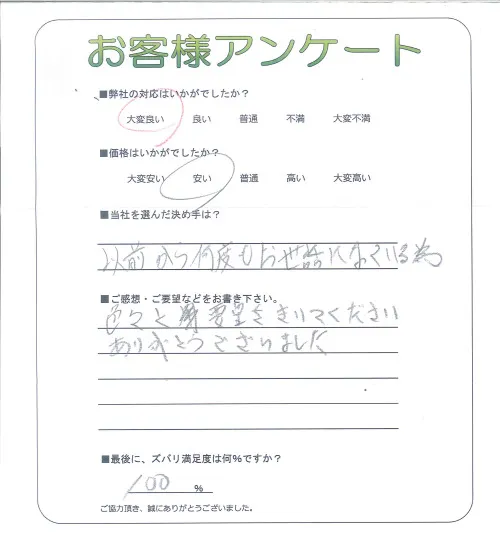 お客様アンケート
■弊社の対応はいかがでしたか？
大変良い 良い 普通 不満 大変不満
■価格はいかがでしたか？
大変安い 安い 普通 高い 大変高い
■当社を選んだ決め手は？
以前から何度もお世話になっている為
■ご感想・ご要望などをお書き下さい。
色々と要望をきいてください
ありがとうございました
■最後に、ズバリ満足度は何％ですか？
100 ％
ご協力頂き、誠にありがとうございました。